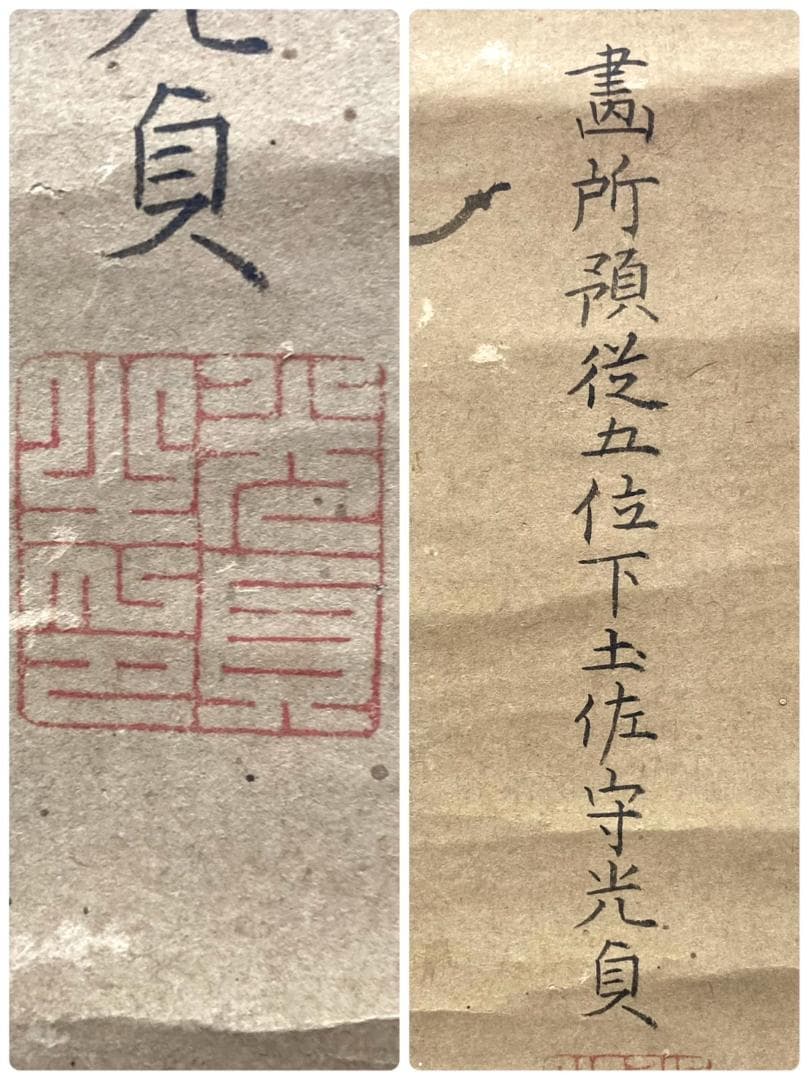 光貞
光貞之印
畫所預從五位下土佐守光貞